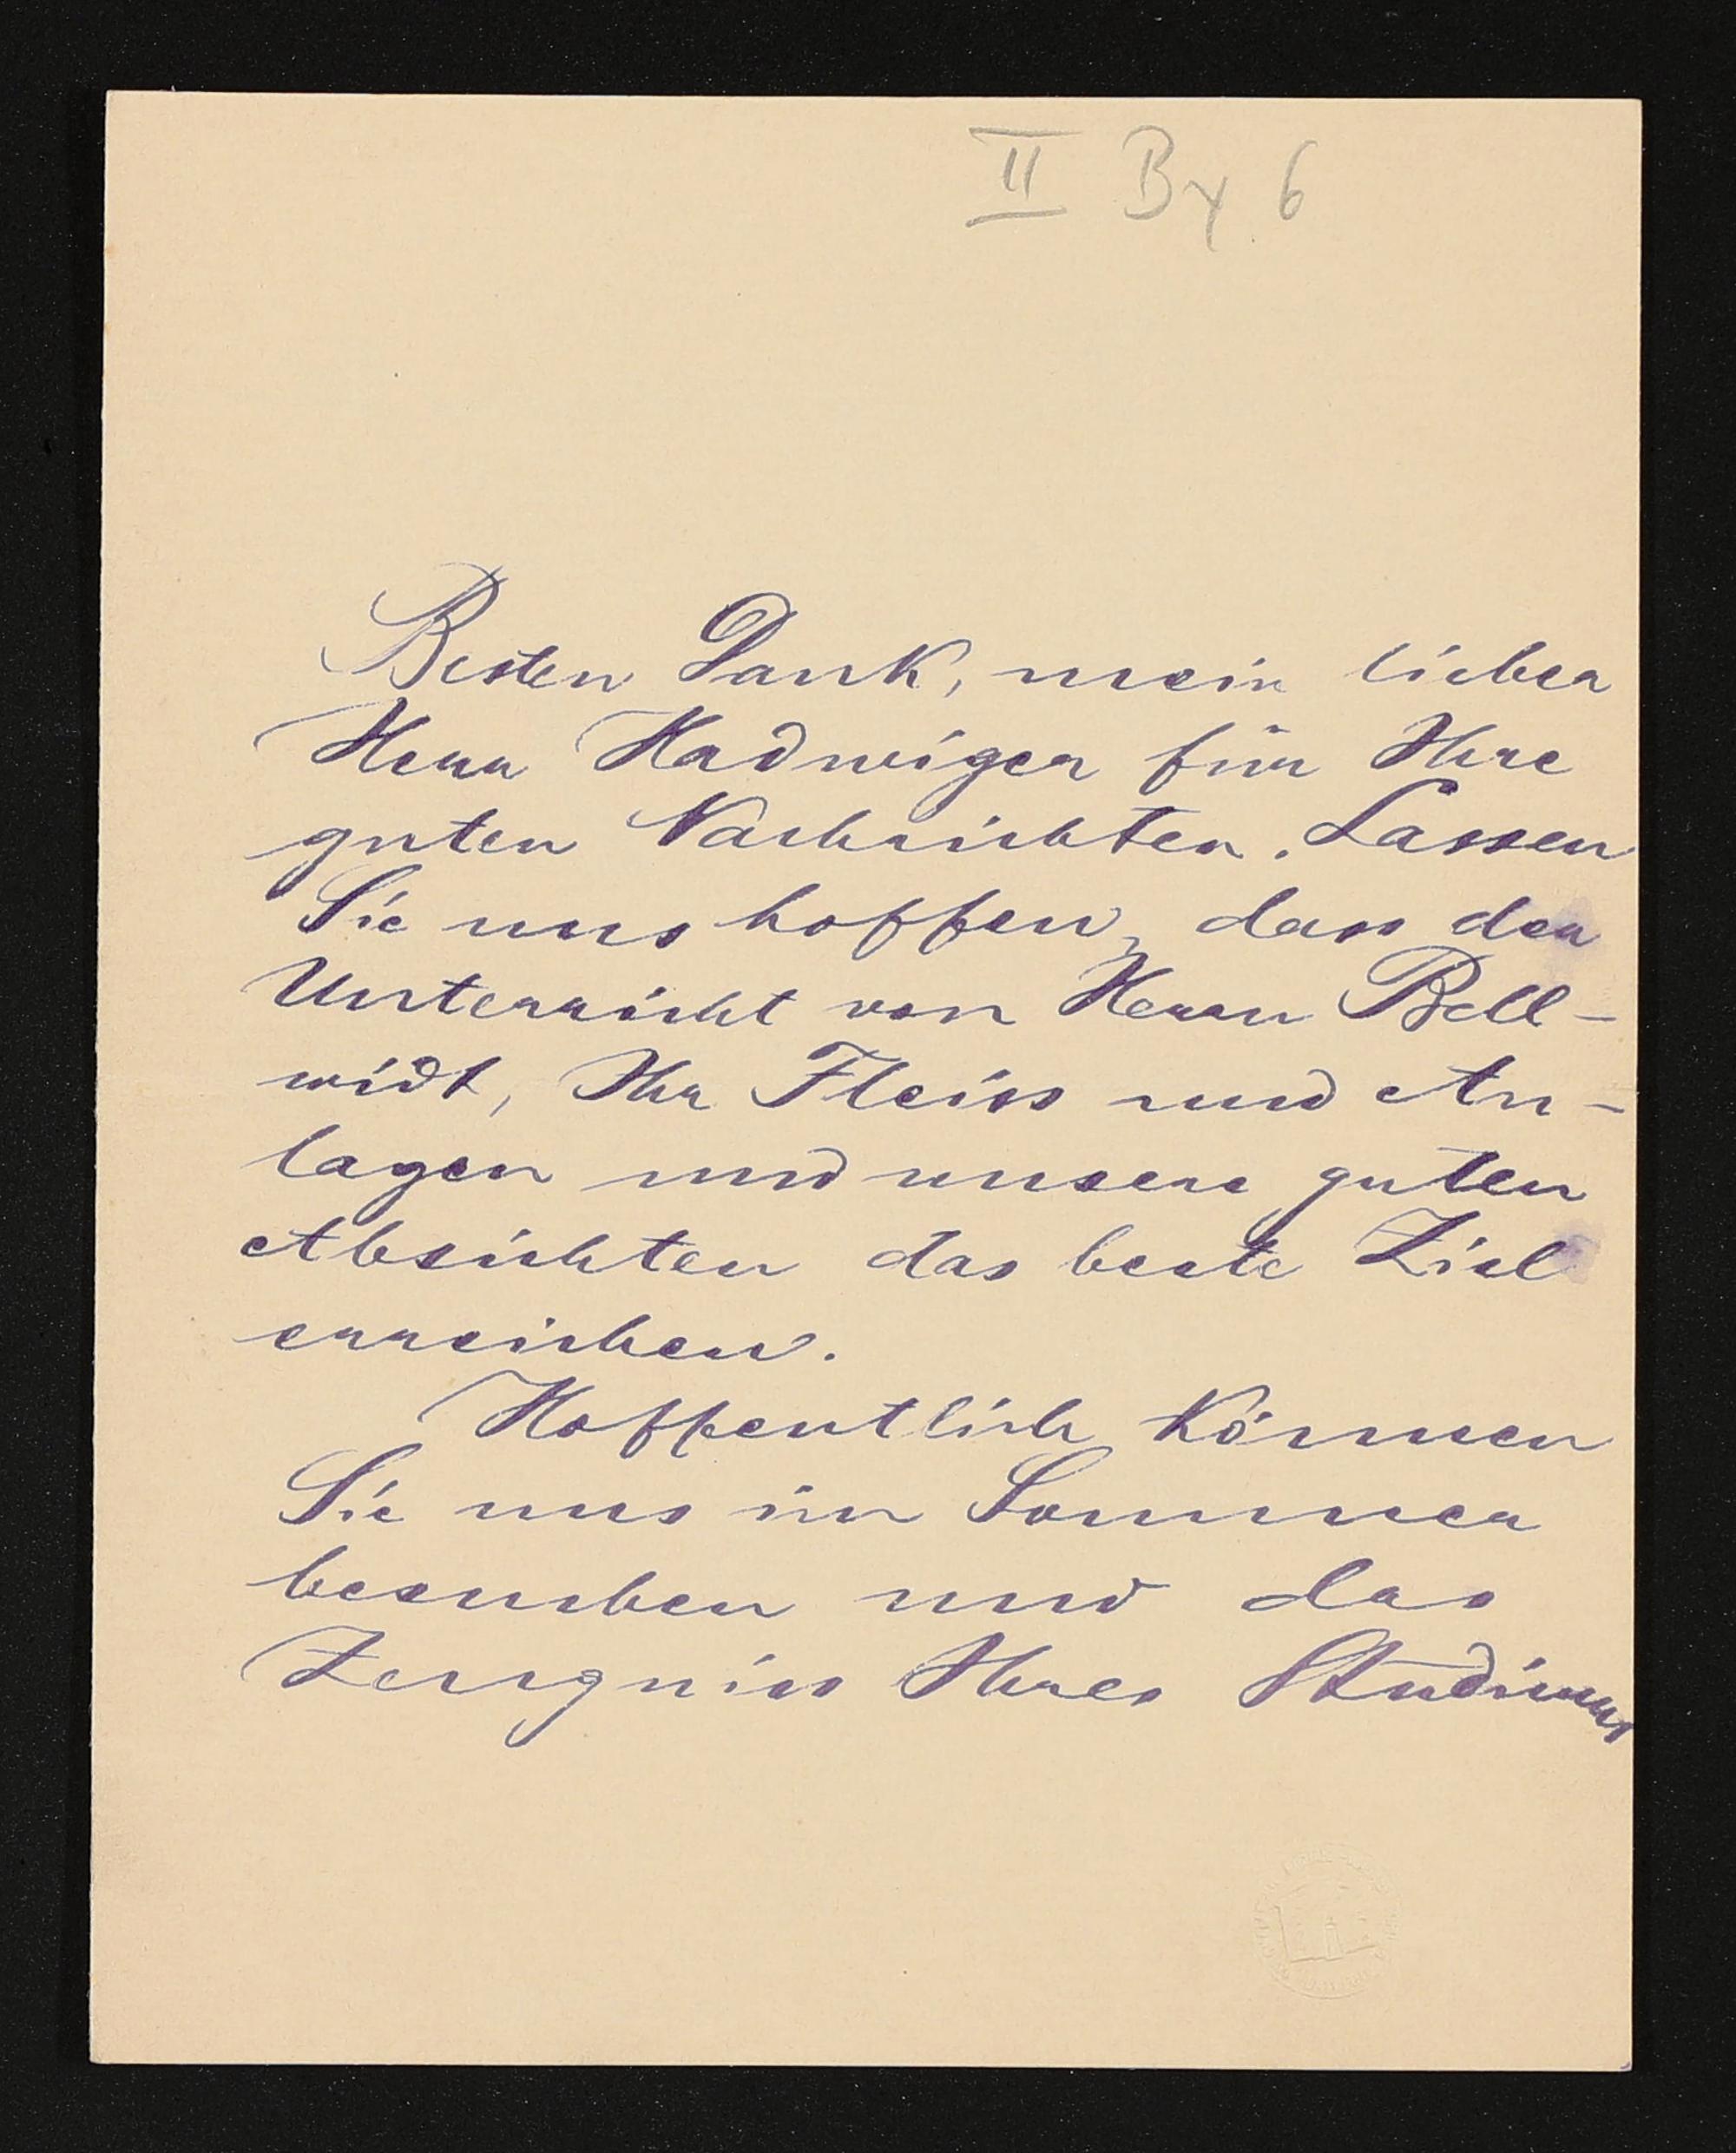 II Bγ 6
Besten Dank, mein lieber
Herr Hadwiger für Ihre
guten Nachrichten. Lassen
Sie uns hoffen, dass der
Unterricht von Herrn Bell-
widt, Ihr Fleiss und An-
lagen und unsere guten
Absichten das beste Ziel
erreichen.
Hoffentlich können
Sie uns im Sommer
besuchen und das
Zeugniss Ihres Studiums